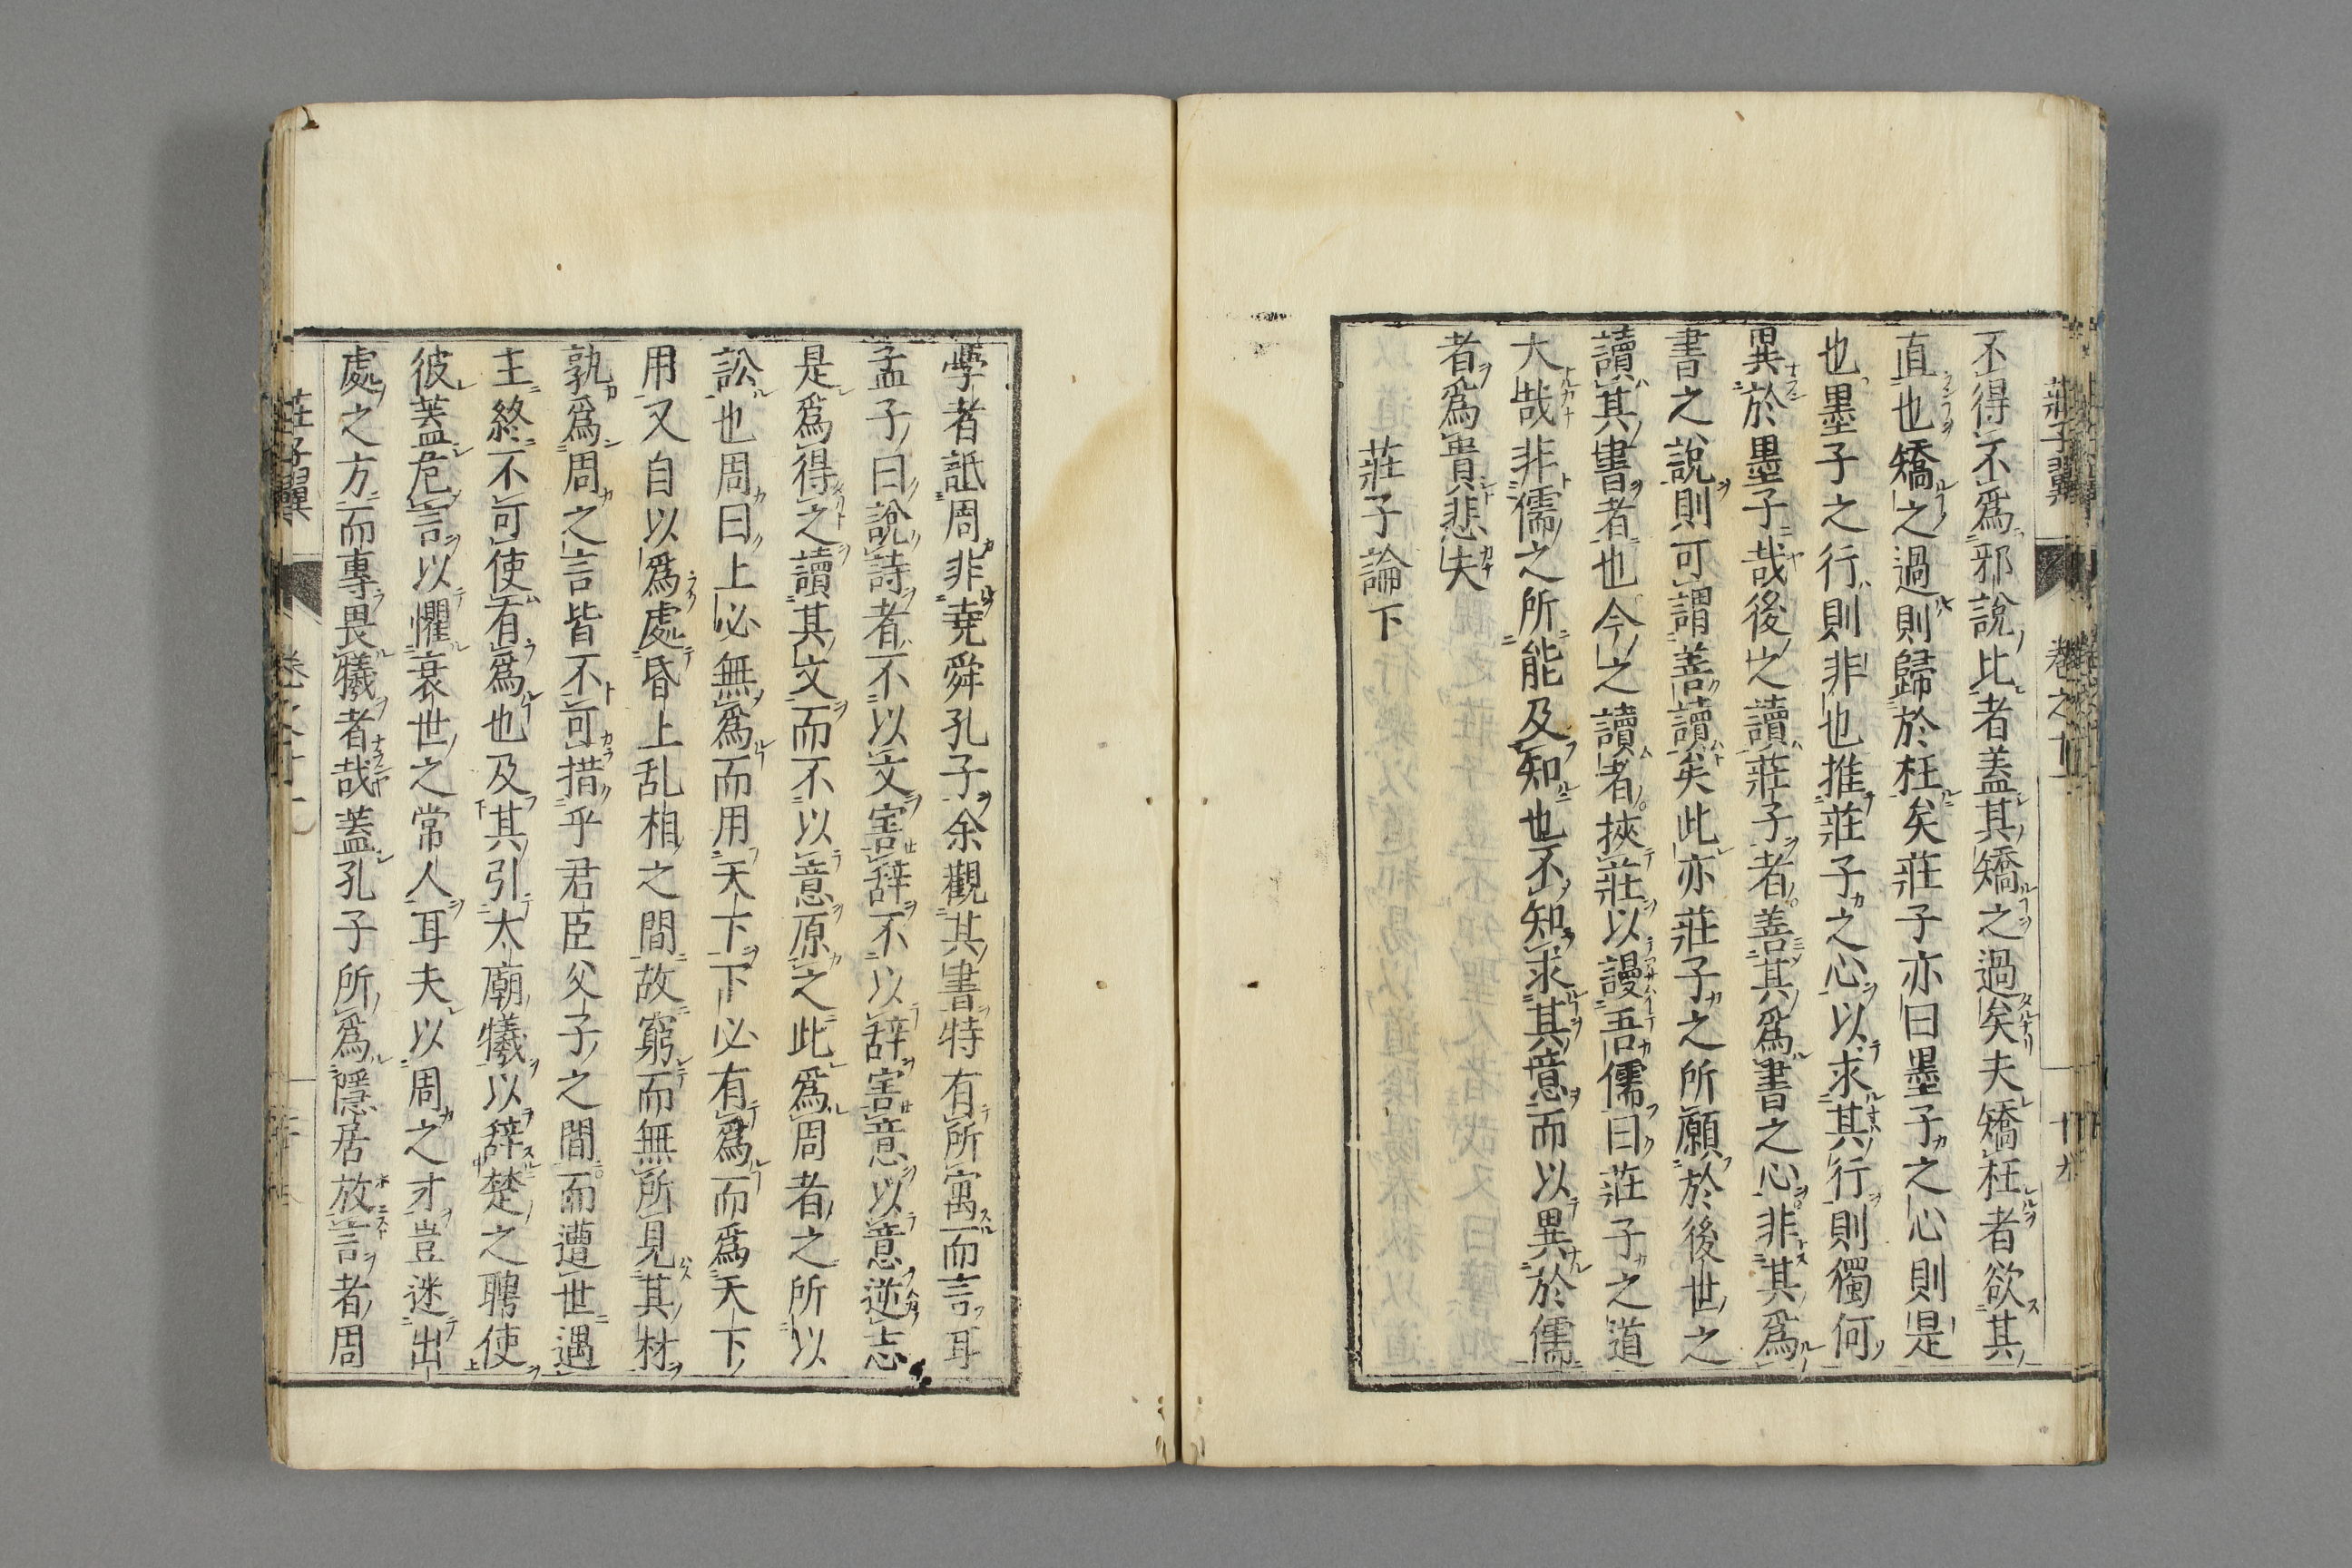 不得不爲邪說比者蓋其矯之過矣夫矯枉者欲其
直也矯之過則歸於枉矣莊子亦曰墨子之心則是
也墨子之行則非也推莊子之心以求其行則獨何
異於墨子哉後之讀莊子者善其爲書之心非其爲
書之說則可謂善讀矣此亦莊子之所願於後世之
讀其書者也今之讀者挾莊以謾吾儒曰莊子之道
大哉非儒之所能及知也不知求其意而以異於儒
者爲貴悲夫
莊子論下
學者詆周非堯舜孔子余觀其書特有所寓而言耳
孟子曰說詩者不以文害辞不以辞害意以意逆志
是爲得之讀其文而不以意原之此爲周者之所以
訟也周曰上必無爲而用天下下必有爲而爲天下
用又自以爲處昏上乱相之間故窮而無所見其材
孰爲周之言皆不可措乎君臣父子之間而遭世遇
主終不可使有爲也及其引太廟犧以辞楚之聘使
彼蓋危言以懼衰世之常人耳夫以周之才豈迷出
處之方而專畏犧者哉蓋孔子所爲隱居放言者周
莊子翼